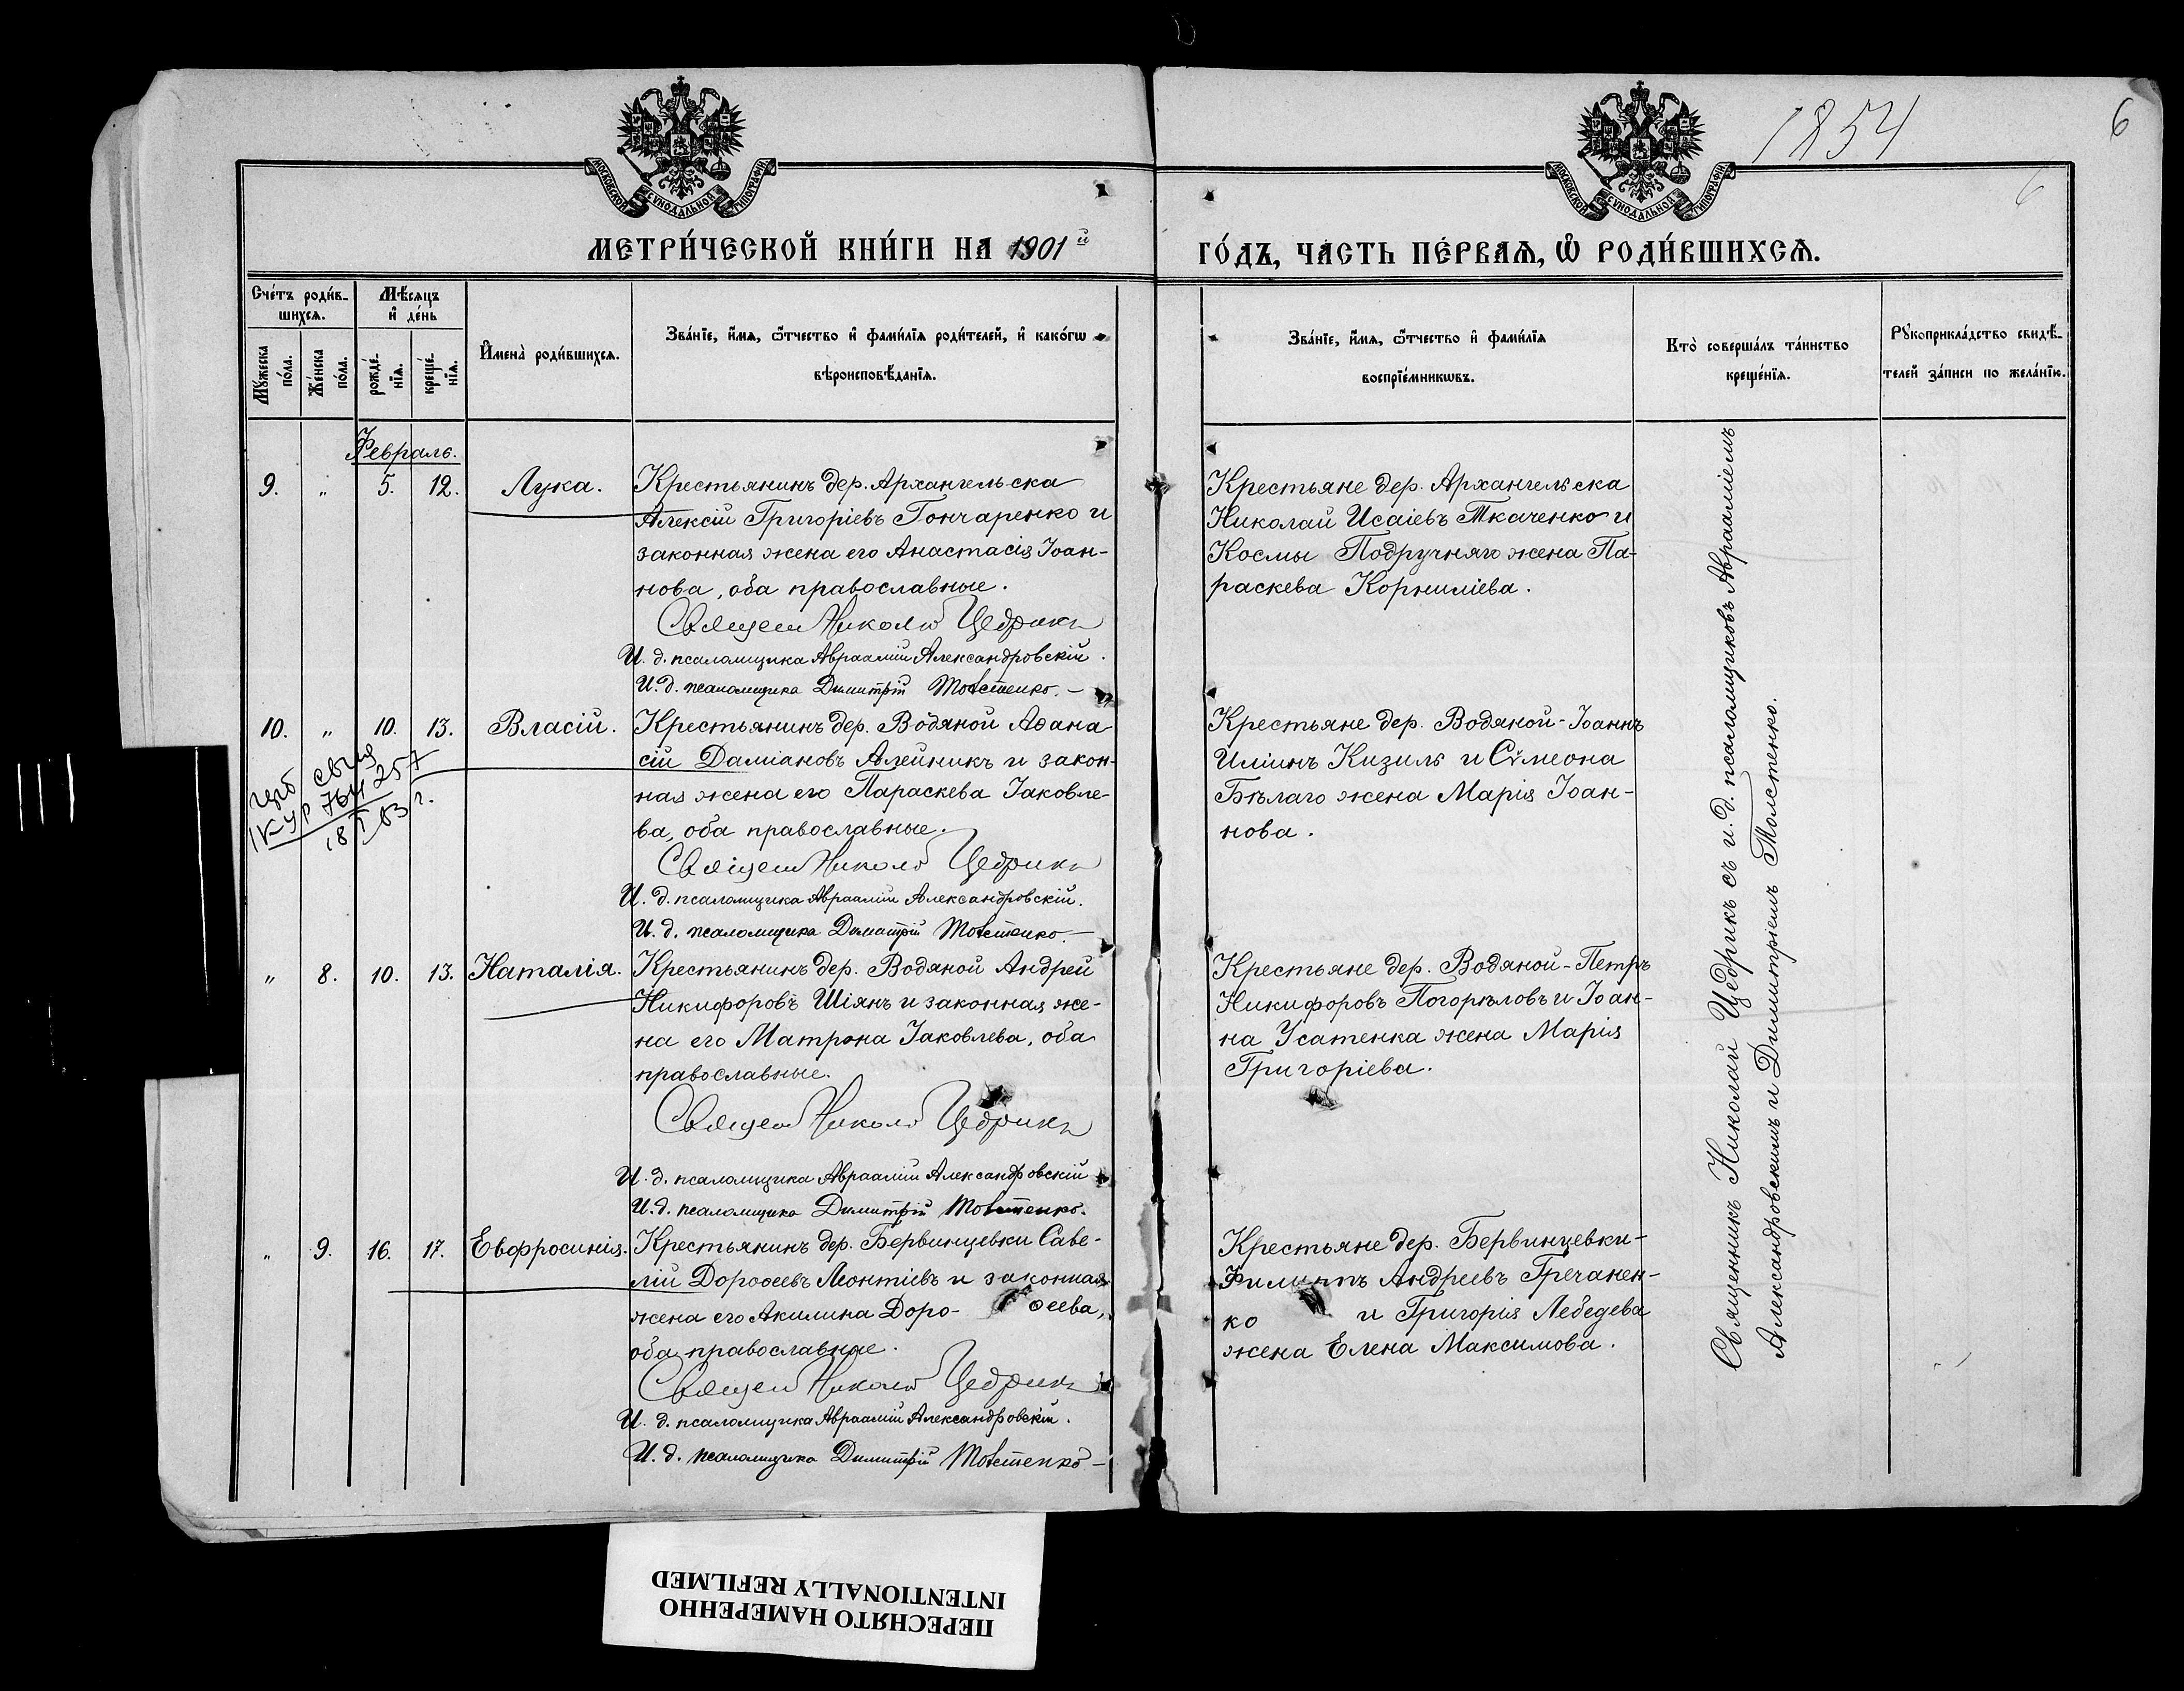 1854
6
6
МОСКОВСКОЙ СѴНОДАЛЬНОЙ ТИПОГРАФІИ
МОСКОВСКОЙ СѴНОДАЛЬНОЙ ТИПОГРАФІИ
МЕТРИ́ЧЕСКОЙ КНИ́ГИ НА 1901й
ГО́ДЪ, ЧА́СТЬ ПЕ́РВАѦ, Ѿ РОДИ́ВШИХСѦ.
Сче́тъ роди́в-
шихсѧ.
Мꙋ́жеска
по́ла.
Же́нска
по́ла.
Мѣ́сѧцъ
и҆ де́нь
рожде́-
нїѧ.
креще́-
нїѧ.
И҆мена̀ роди́вшихсѧ.
Зва́нїе, и҆́мѧ, ѻ҆́тчество и҆ фами́лїѧ роди́телей, и҆ како́гѡ
вѣроисповѣ́данїѧ.
Зва́нїе, и҆́мѧ, ѻ҆́тчество и҆ фами́лїѧ
воспрїе́мникѡвъ.
Кто̀ соверша́лъ та́инство
креще́нїѧ.
Рꙋкоприкла́дство свидѣ́-
телей за́писи по жела́нїю.
Февраль.
9. „ 5. 12. Лука.
Крестьянинъ дер. Архангельска
Алексій Григоріевъ Гончаренко и
законная жена его Анастасія Іоан-
нова, оба православные.
Священ Николай Цедрикъ
И. д. псаломщика Авраамій Александровскій.
И. д. псаломщика Димитрій Толстенко.
Крестьяне дер. Архангельска
Николай Исаіевъ Ткаченко и
Космы Подручняго жена Па-
раскева Корниліева.
10. „ 10. 13. Власій.
Крестьянинъ дер. Водяной Аѳана
сій Даміановъ Алейникъ и закон-
ная жена его Параскева Іаковле-
ва, оба православные.
Священ Николай Цедрикъ
И. д. псаломщика Авраамій Александровскій.
И. д. псаломщика Димитрій Толстенко.
257
Крестьяне дер. Водяной - Іоаннъ
Иліинъ Кизилъ и Сѵмеона
Бѣлаго жена Марія Іоан-
нова.
„ 8. 10. 13. Наталія.
Крестьянинъ дер. Водяной Андрей
Никифоровъ Шіянъ и законная же-
на его Матрона Іаковлева, оба
православные.
Священ Николай Цедрикъ
И. д. псаломщика Авраамій Александровскій
И. д. псаломщика Димитрій Толстенко.
Крестьяне дер. Водяной - Петръ
Никифоровъ Погорѣловъ и Іоан-
на Усатенка жена Марія
Григоріева.
„ 9. 16. 17. Евфросинія.
Крестьянинъ дер. Бервинцевки Саве-
лій Дороѳеевъ Леонтіевъ и законная
жена его Акилина Доро- ѳеева,
оба православные.
Священ Николай Цедрикъ
И. д. псаломщика Авраамій Александровскій.
И. д. псаломщика Димитрій Толстенко
Крестьяне дер. Бервинцевки -
Филиппъ Андреевъ Гречанен-
ко и Григорія Лебедева
жена Елена Максимова.
Священникъ Николай Цедрикъ съ и. д. псаломщиковъ Авраамiемъ
Александровскимъ и Димитріемъ Толстенко.
ПЕРЕСНЯТО НАМЕРЕННО
INTENTIONALLY REFILMED